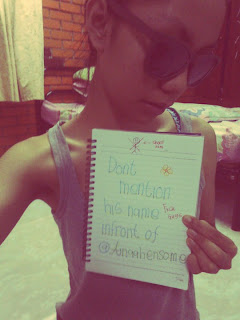 Dont
mention
his name
infront of